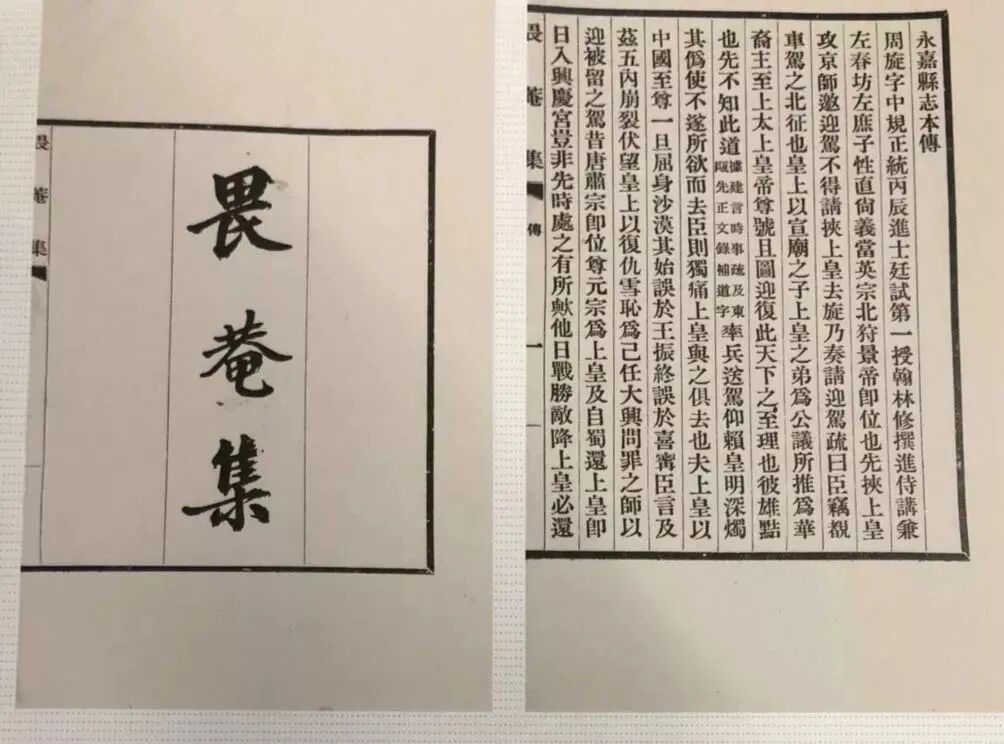 畏菴集
畏菴集
永嘉縣志本傳
周旋字中規正統丙辰進士廷試第一授翰林修撰進侍講兼
左春坊左庶子性直尙義當英宗北狩景帝卽位也先挾上皇
攻京師邀迎駕不得請挾上皇去旋乃奏請迎駕疏曰臣竊覩
車駕之北征也皇上以宣廟之子上皇之弟爲公議所推爲華
裔主至上太上皇帝尊號且圖迎復此天下之至理也彼雄點
也先不知此道據建言時事疏及東甌先正文錄補道字率兵送駕仰賴皇明深燭
其僞使不遂所欲而去臣則獨痛上皇與之俱去也夫上皇以
中國至尊一旦屈身沙漠其始誤於王振終誤於喜寗臣言及
茲五內崩裂伏望皇上以復仇雪恥爲己任大興問罪之師以
迎被留之駕昔唐肅宗卽位尊元宗爲上皇及自蜀還上皇卽
日入興慶宮豈非先時處之有所歟他日戰勝敵降上皇必還
畏菴集 傳 一